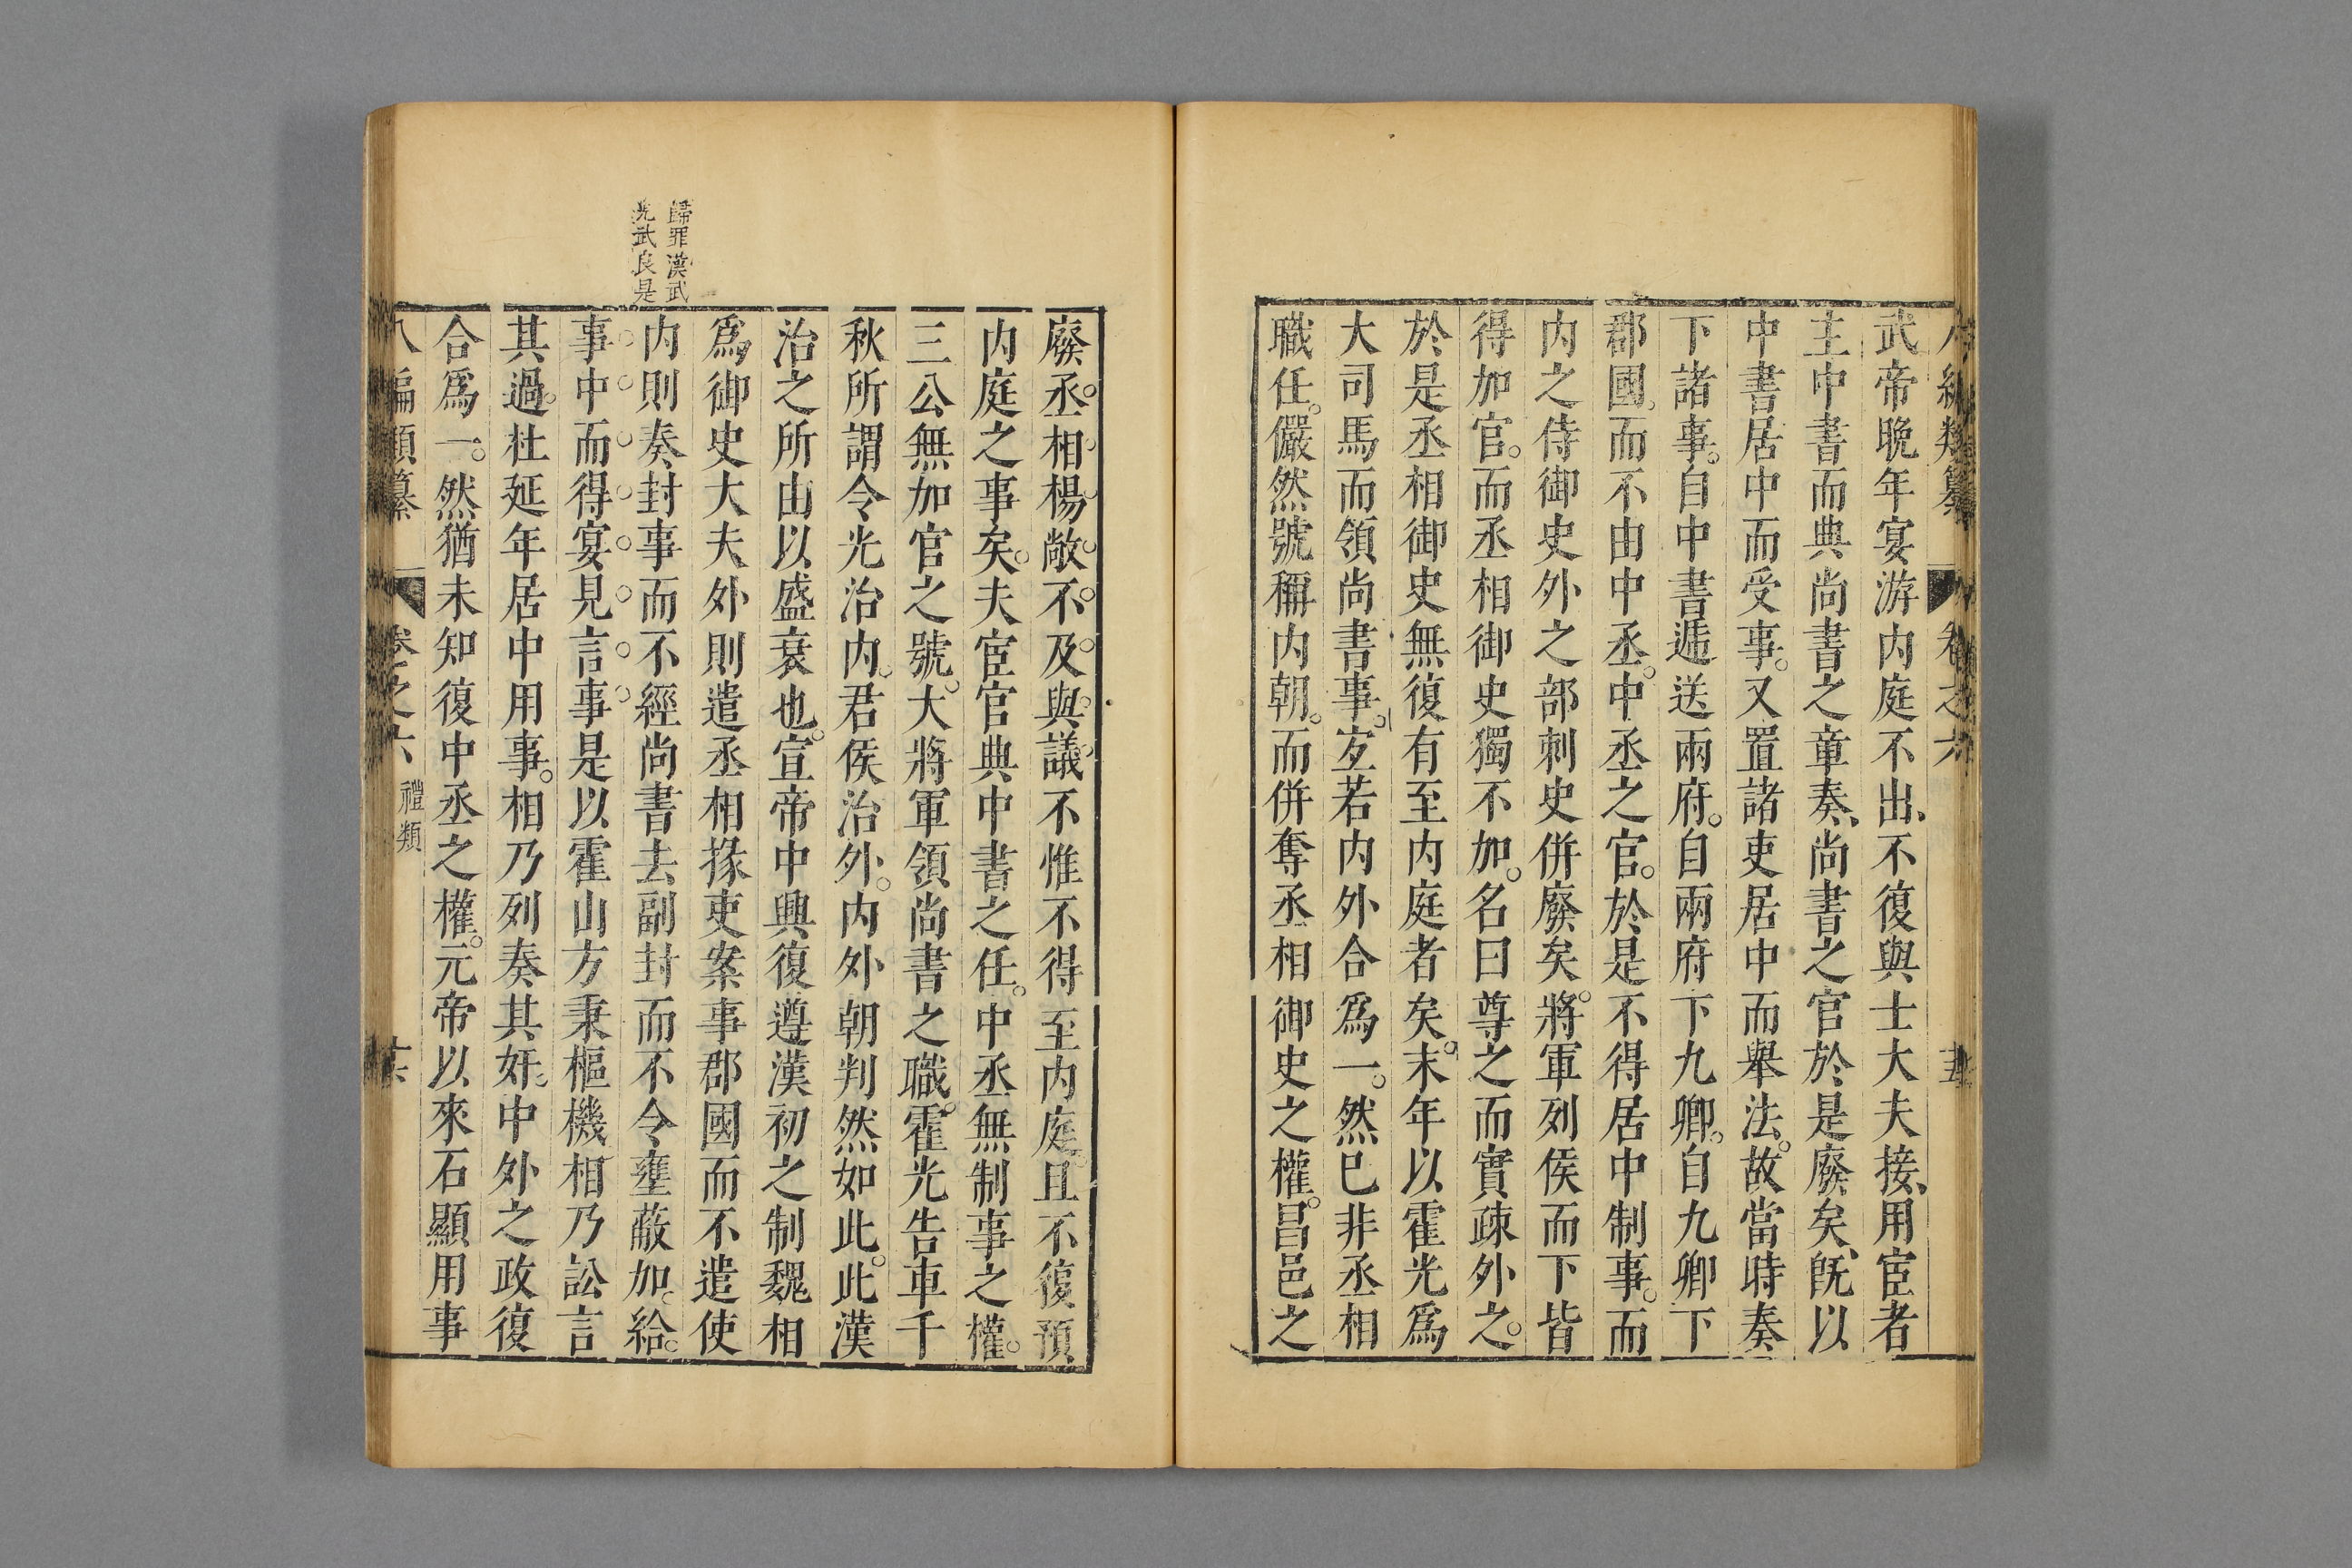 武帝晚年宴游内庭不出、不復與士大夫接、用宦者
主中書而典尚書之章奏、尚書之官於是廢矣、旣以
中書居中而受事。又置諸吏居中而舉法。故當時奏
下諸事。自中書遞送兩府。自兩府下九卿。自九卿下
郡國。而不由中丞。中丞之官。於是不得居中制事。而
内之侍御史外之部刺史併廢矣。將軍列侯而下皆
得加官。而丞相御史獨不加。名曰尊之而實疎外之。
於是丞相御史無復有至内庭者矣。末年以霍光爲
大司馬而領尚書事。寔若内外合爲一。然已非丞相
職任。儼然號稱内朝。而併奪丞相御史之權。昌邑之
歸罪漢武
光武良是
廢。丞相楊敞不及與議不惟不得至内庭且不復預
内庭之事矣。夫宦官典中書之任。中丞無制事之權。
三公無加官之號。大將軍領尚書之職。霍光告車千
秋所謂令光治内。君侯治外。内外朝判然如此。此漢
治之所由以盛衰也。宣帝中興復遵漢初之制魏相
爲御史大夫外則遣丞相掾吏案事郡國而不遣使
内則奏封事而不經尚書去副封而不令壅蔽加。給。
事中而得宴見言事是以霍山方秉樞機相乃訟言
其過。杜延年居中用事。相乃列奏其奸。中外之政復
合爲一。然猶未知復中丞之權。元帝以來石顯用事
八編類纂 卷之六 禮類